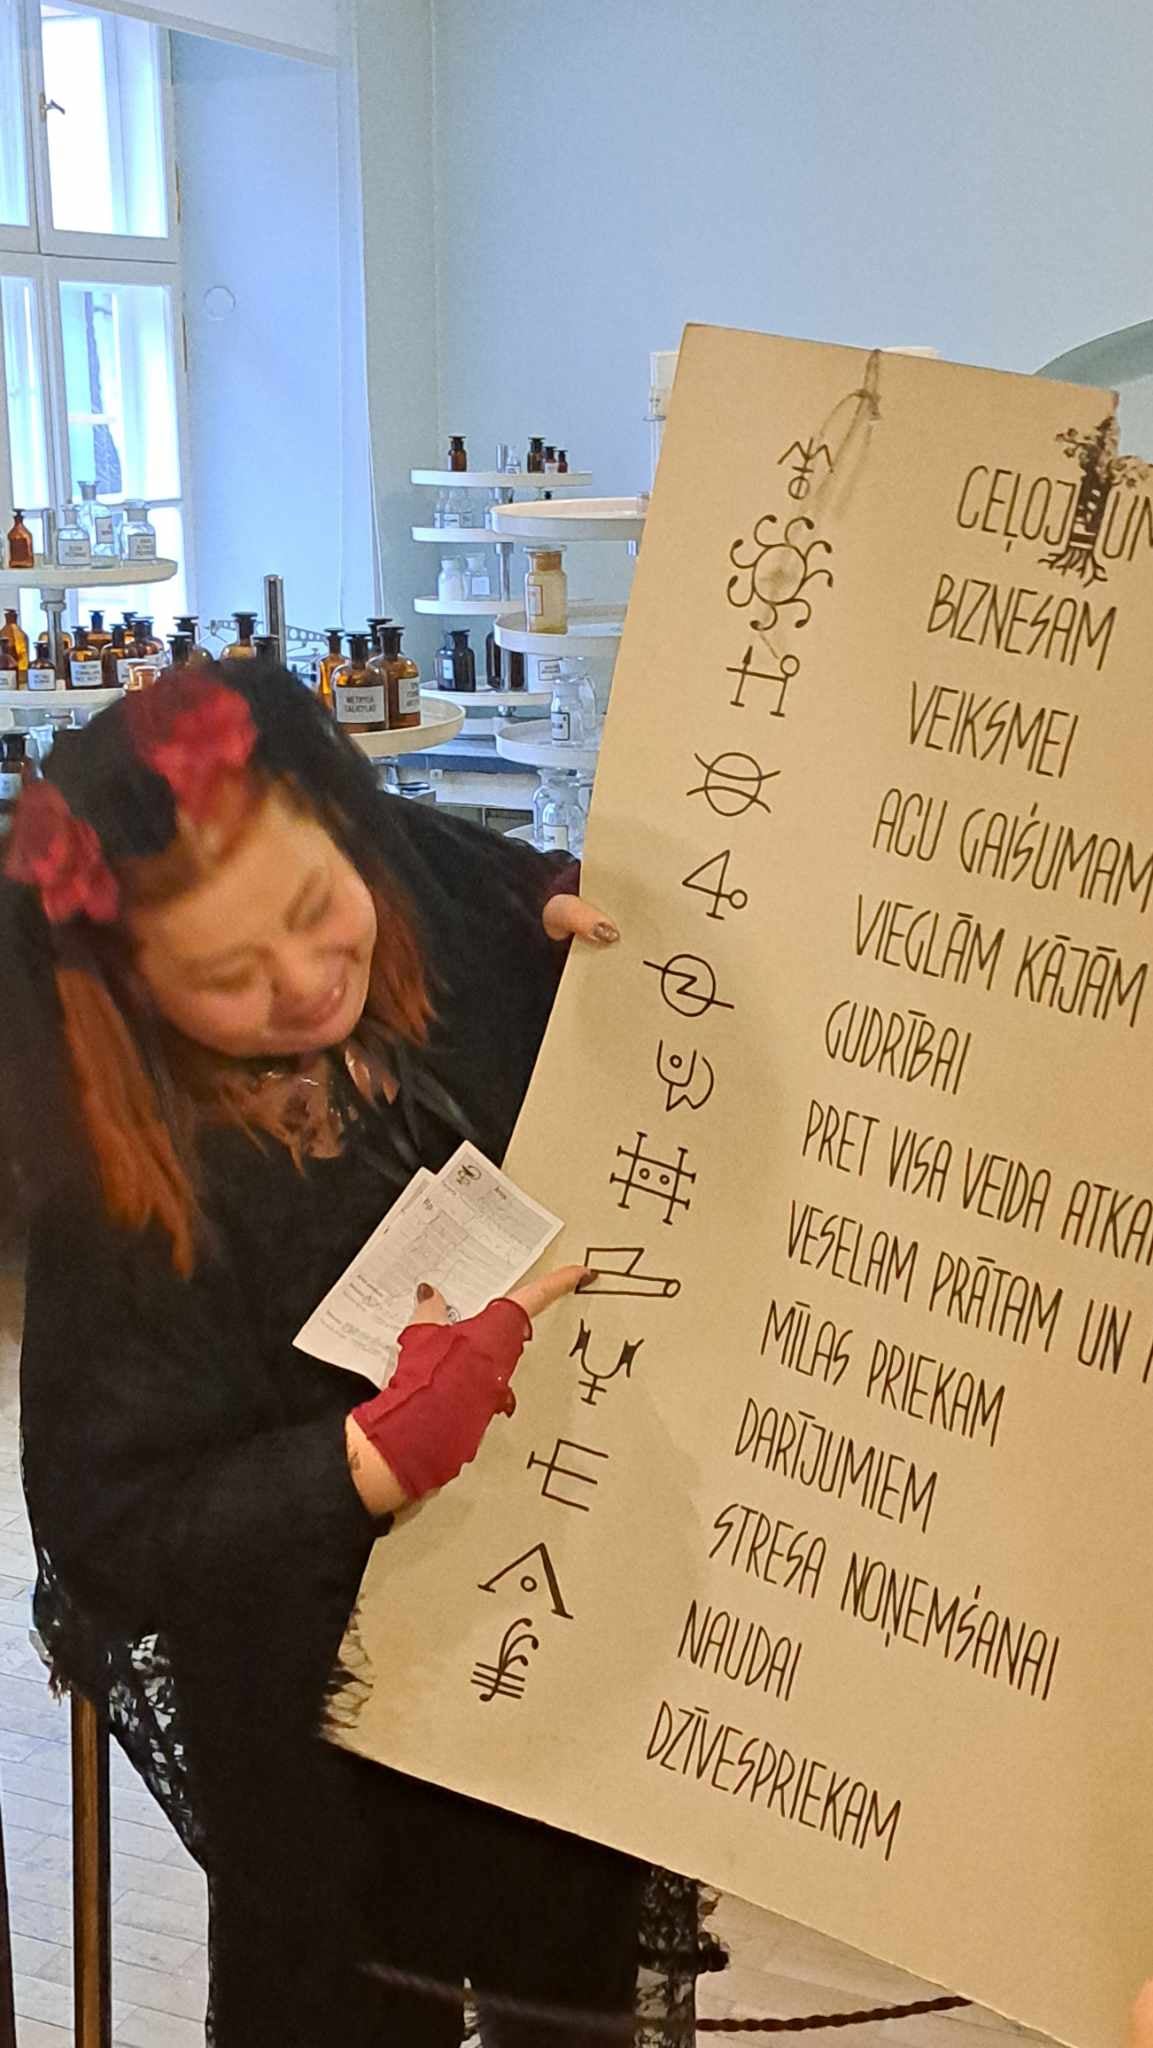 CEĻOJ UM
BIZNESAM
VEIKSMEI
ACU GAIŠUMAM
VIEGLĀM KĀJĀM
GUDRĪBAI
PRET VISA VEIDA ATKA
VESELAM PRĀTAM UN
MĪLAS PRIEKAM
DARĪJUMIEM
STRESA NOŅEMŠANAI
NAUDAI
DZĪVESPRIEKAM